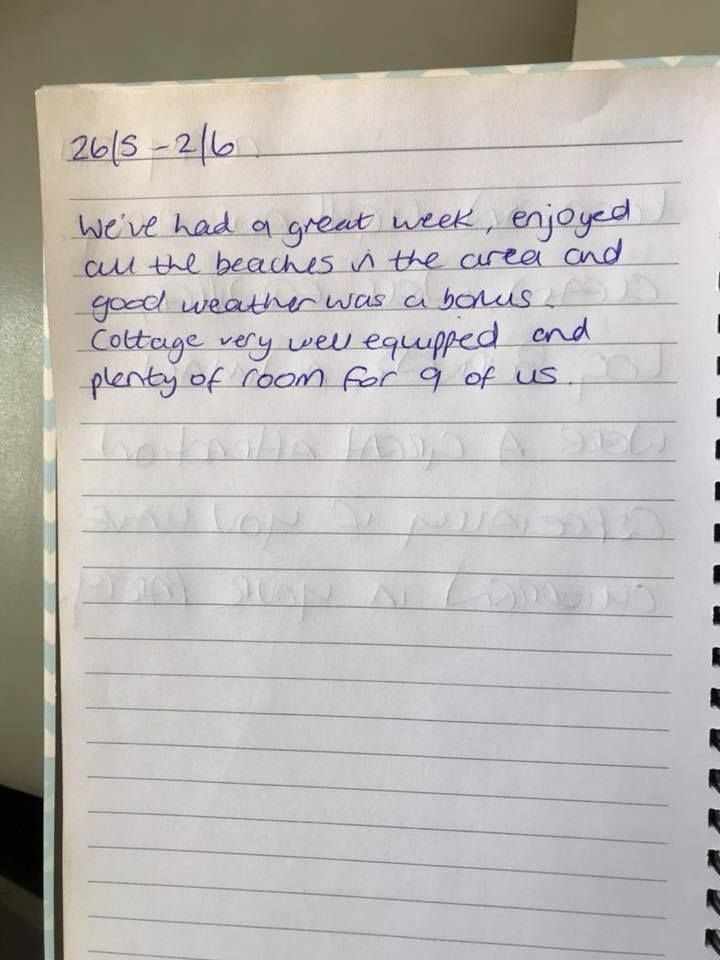 26/5 - 2/6.
We've had a great week, enjoyed
all the beaches in the area and
good weather was a bonus.
Cottage very well equipped and
plenty of room for 9 of us.